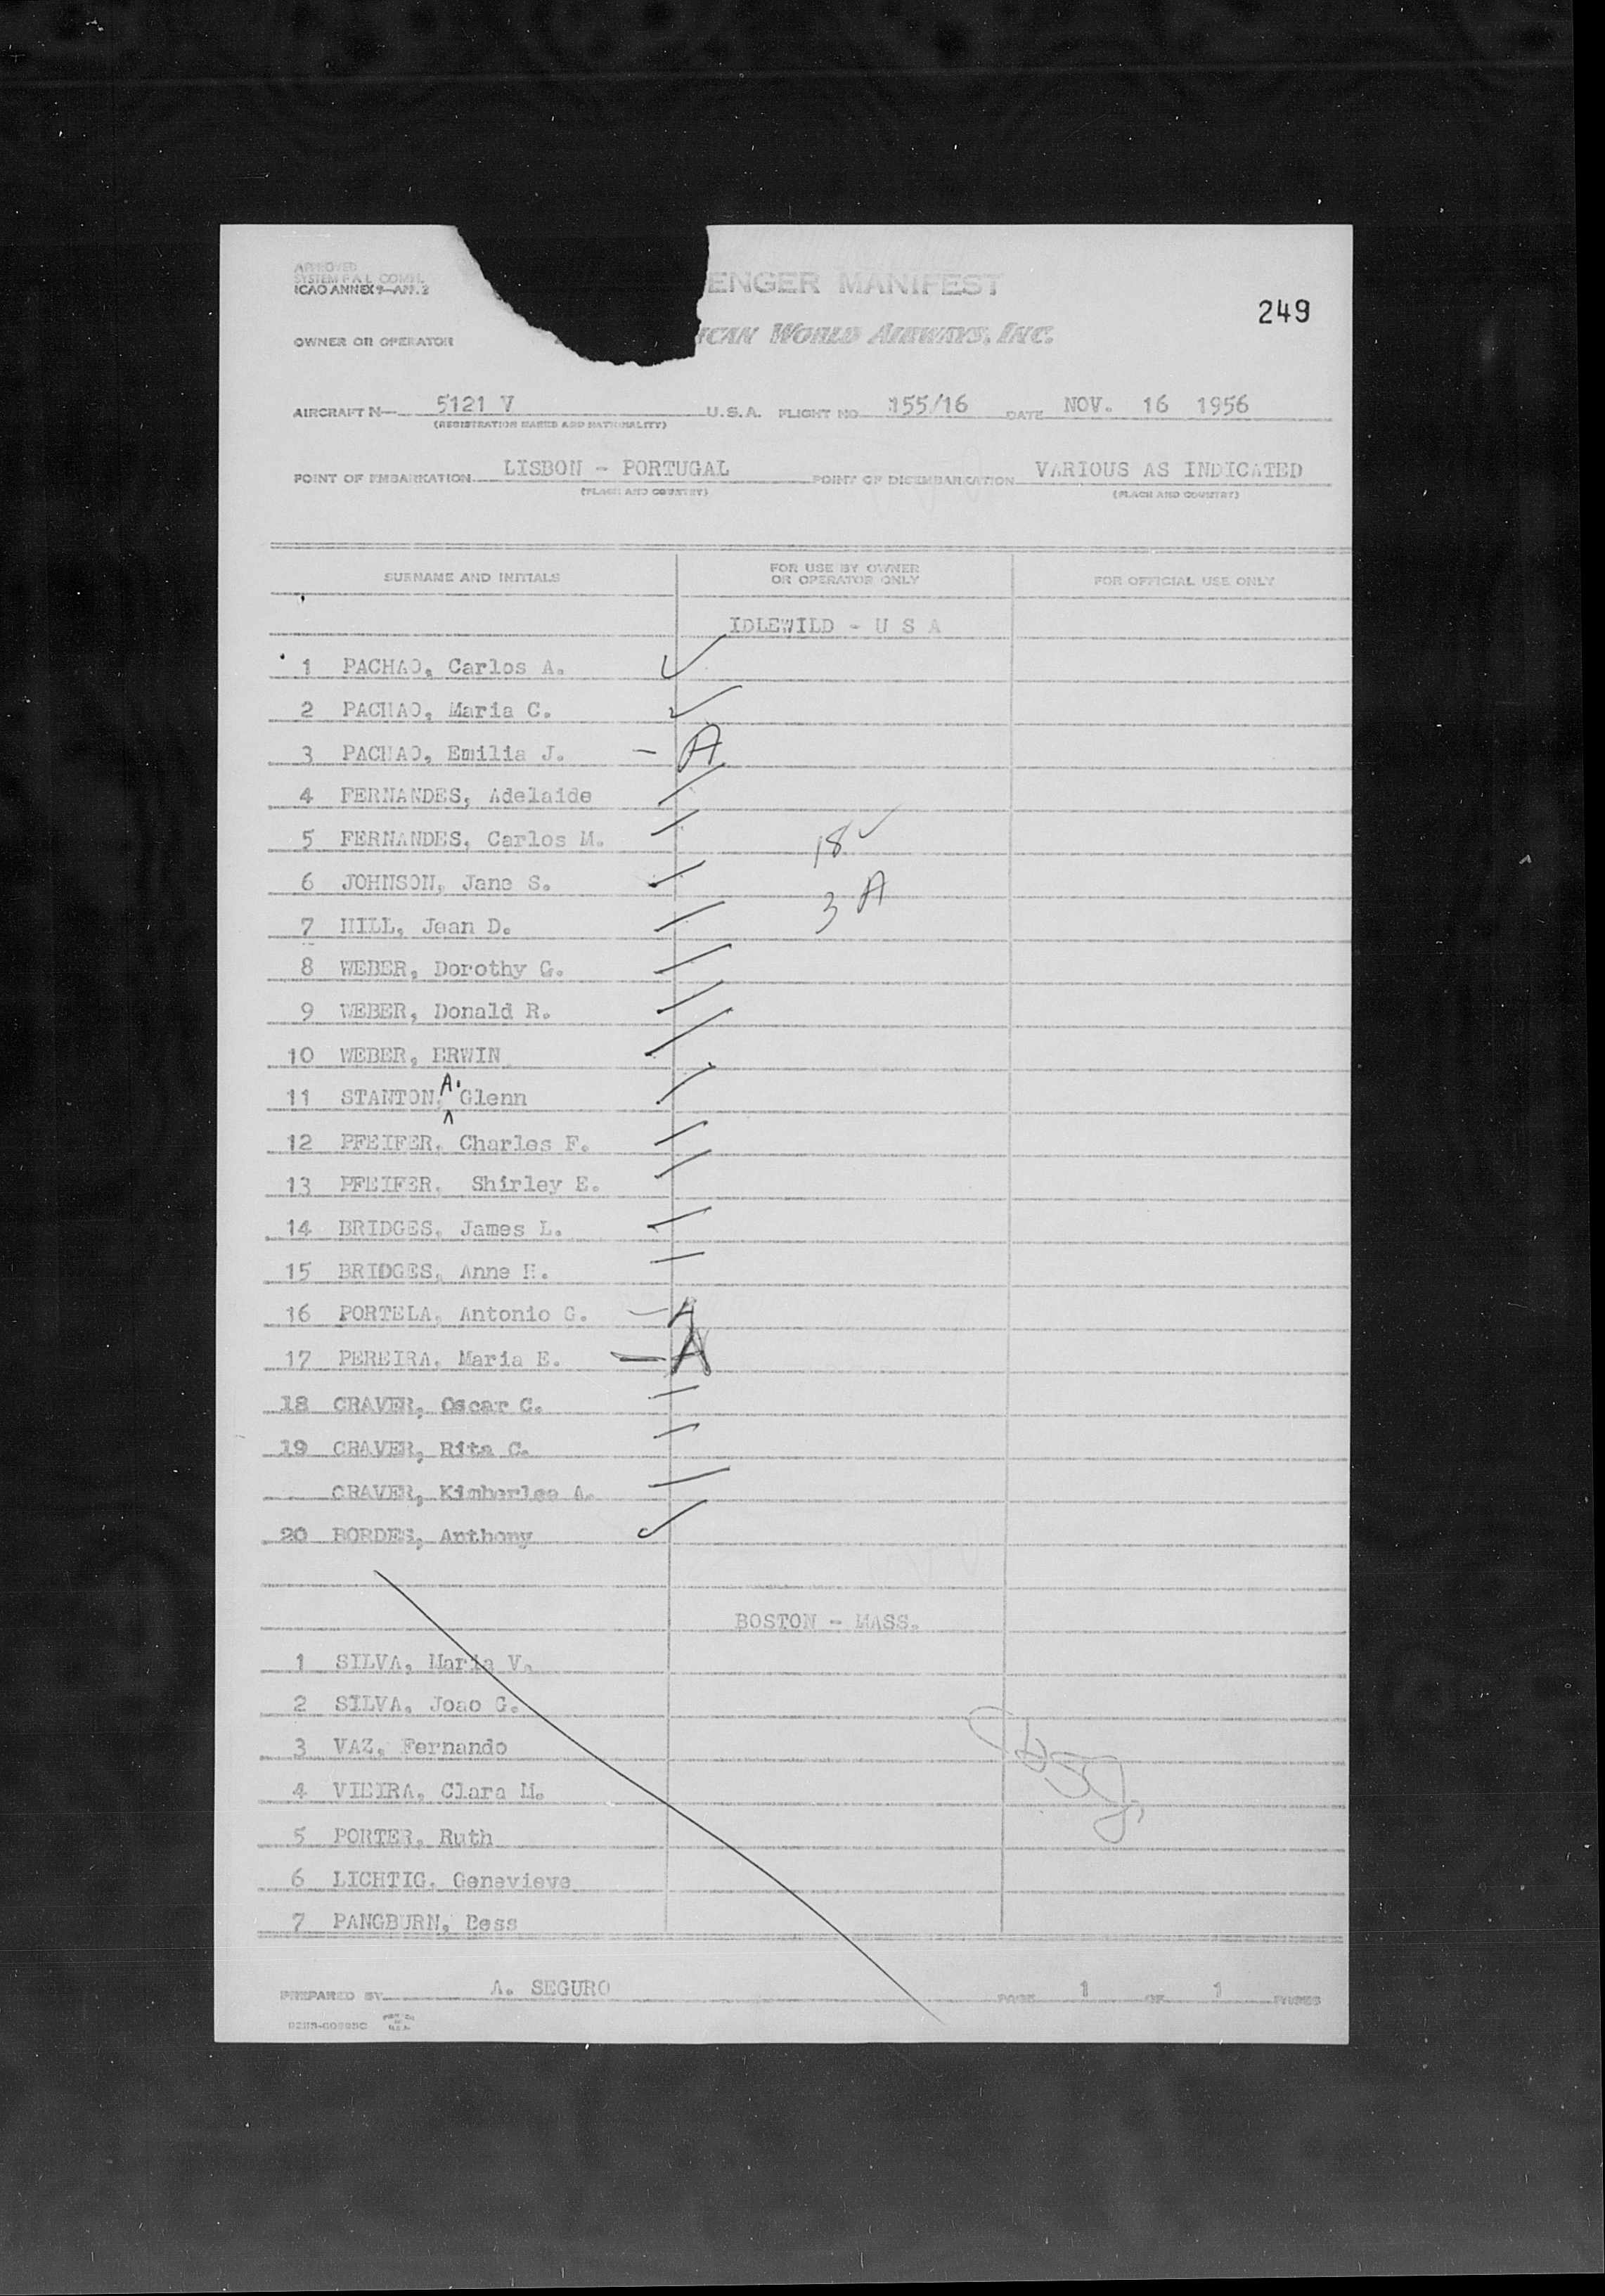 APPROVED
SYSTEM F.A.L. COMM.
ICAO ANNEX 9—APP. 2
ENGER MANIFEST
249
OWNER OR OPERATOR
ICAN WORLD AIRWAYS, INC.
AIRCRAFT N— 5121 V U.S.A. FLIGHT NO 155/16 DATE NOV. 16 1956
(REGISTRATION MARKS AND NATIONALITY)
POINT OF EMBARKATION LISBON - PORTUGAL POINT OF DISEMBARKATION VARIOUS AS INDICATED
(PLACE AND COUNTRY) (PLACE AND COUNTRY)
SURNAME AND INITIALS FOR USE BY OWNER OR OPERATOR ONLY FOR OFFICIAL USE ONLY
IDLEWILD - U S A
1 PACHAO, Carlos A. ✓
2 PACHAO, Maria C. ✓
3 PACHAO, Emilia J. — A
4 FERNANDES, Adelaide
5 FERNANDES, Carlos M. 18 ✓
6 JOHNSON, Jane S. 3 A
7 HILL, Jean D.
8 WEBER, Dorothy G.
9 WEBER, Donald R.
10 WEBER, ERWIN
11 STANTON, A. Glenn
12 PFEIFER, Charles F.
13 PFEIFER, Shirley E.
14 BRIDGES, James L.
15 BRIDGES, Anne H.
16 PORTELA, Antonio G. — A
17 PEREIRA, Maria E. — A
18 CRAVER, Oscar C.
19 CRAVER, Rita C.
CRAVER, Kimberlee A.
20 BORDES, Anthony ✓
BOSTON - MASS.
1 SILVA, Maria V.
2 SILVA, Joao G.
3 VAZ, Fernando
4 VIEIRA, Clara M.
5 PORTER, Ruth
6 LICHTIG, Genevieve
7 PANGBURN, Bess
PREPARED BY A. SEGURO PAGE 1 OF 1